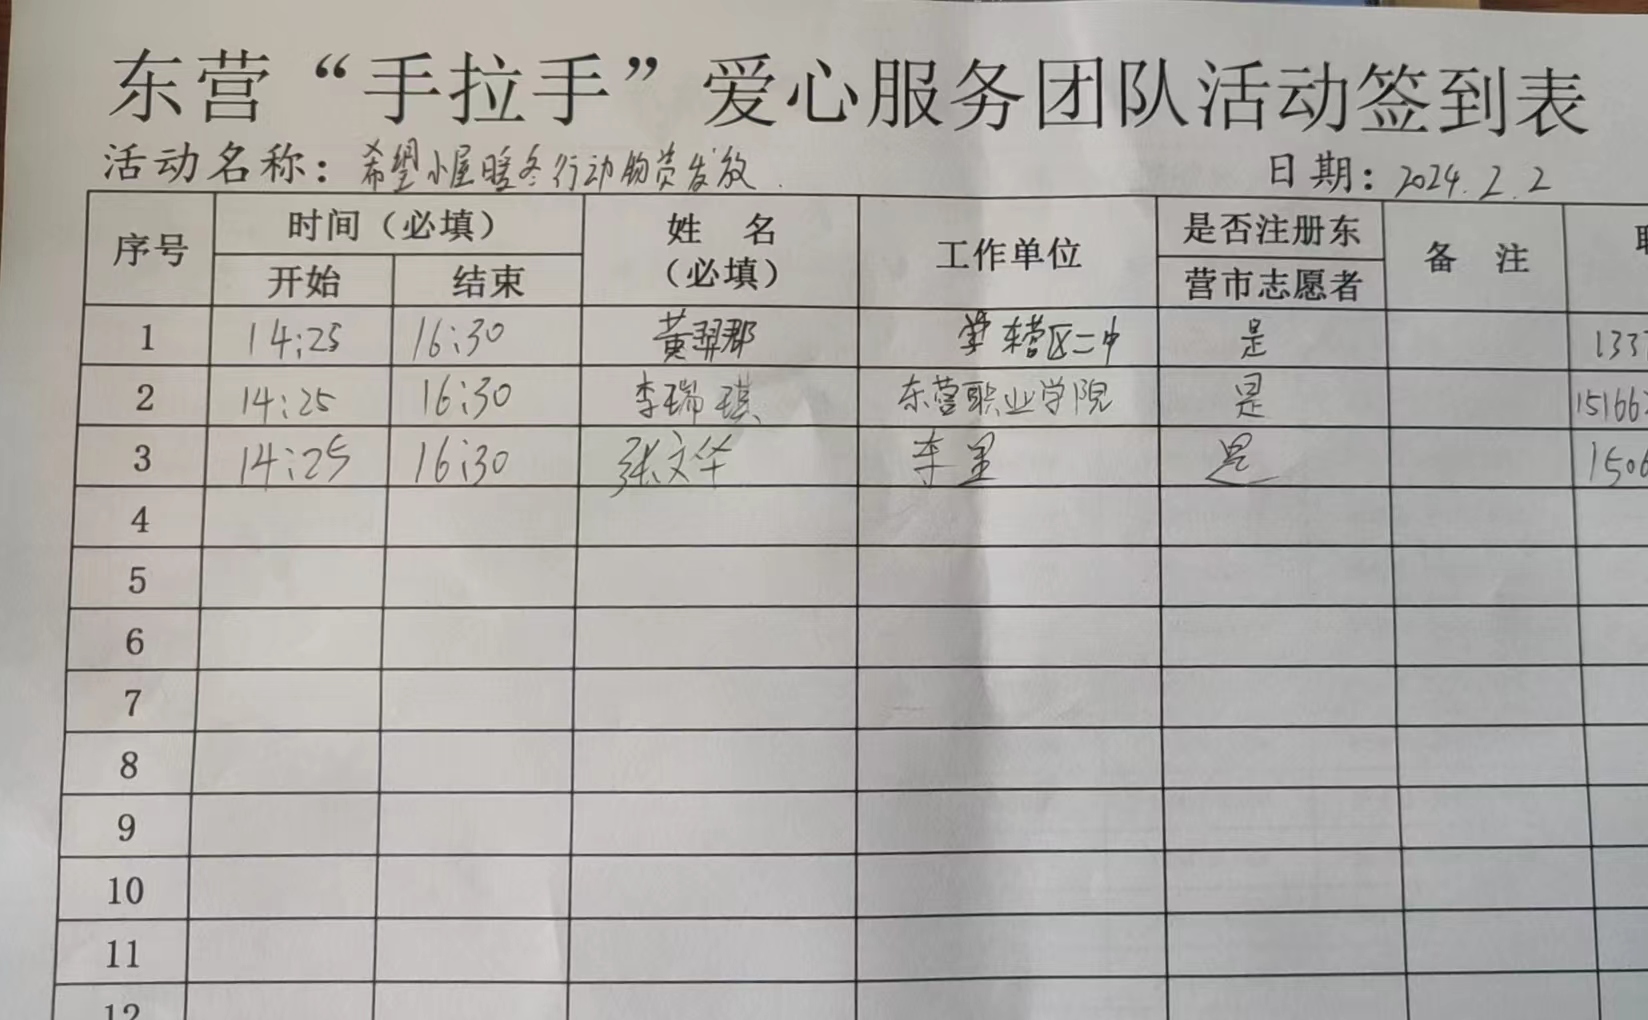 东营“手拉手”爱心服务团队活动签到表
活动名称：希望小屋暖冬行动物资发放. 日期：2024.2.2
序号 时间（必填） 姓 名（必填） 工作单位 是否注册东营市志愿者 备 注
开始 结束
1 14:25 16:30 黄羿郡 东营区二中 是 133
2 14:25 16:30 李瑞琪 东营职业学院 是 15166
3 14:25 16:30 张文华 是 150
4
5
6
7
8
9
10
11
12